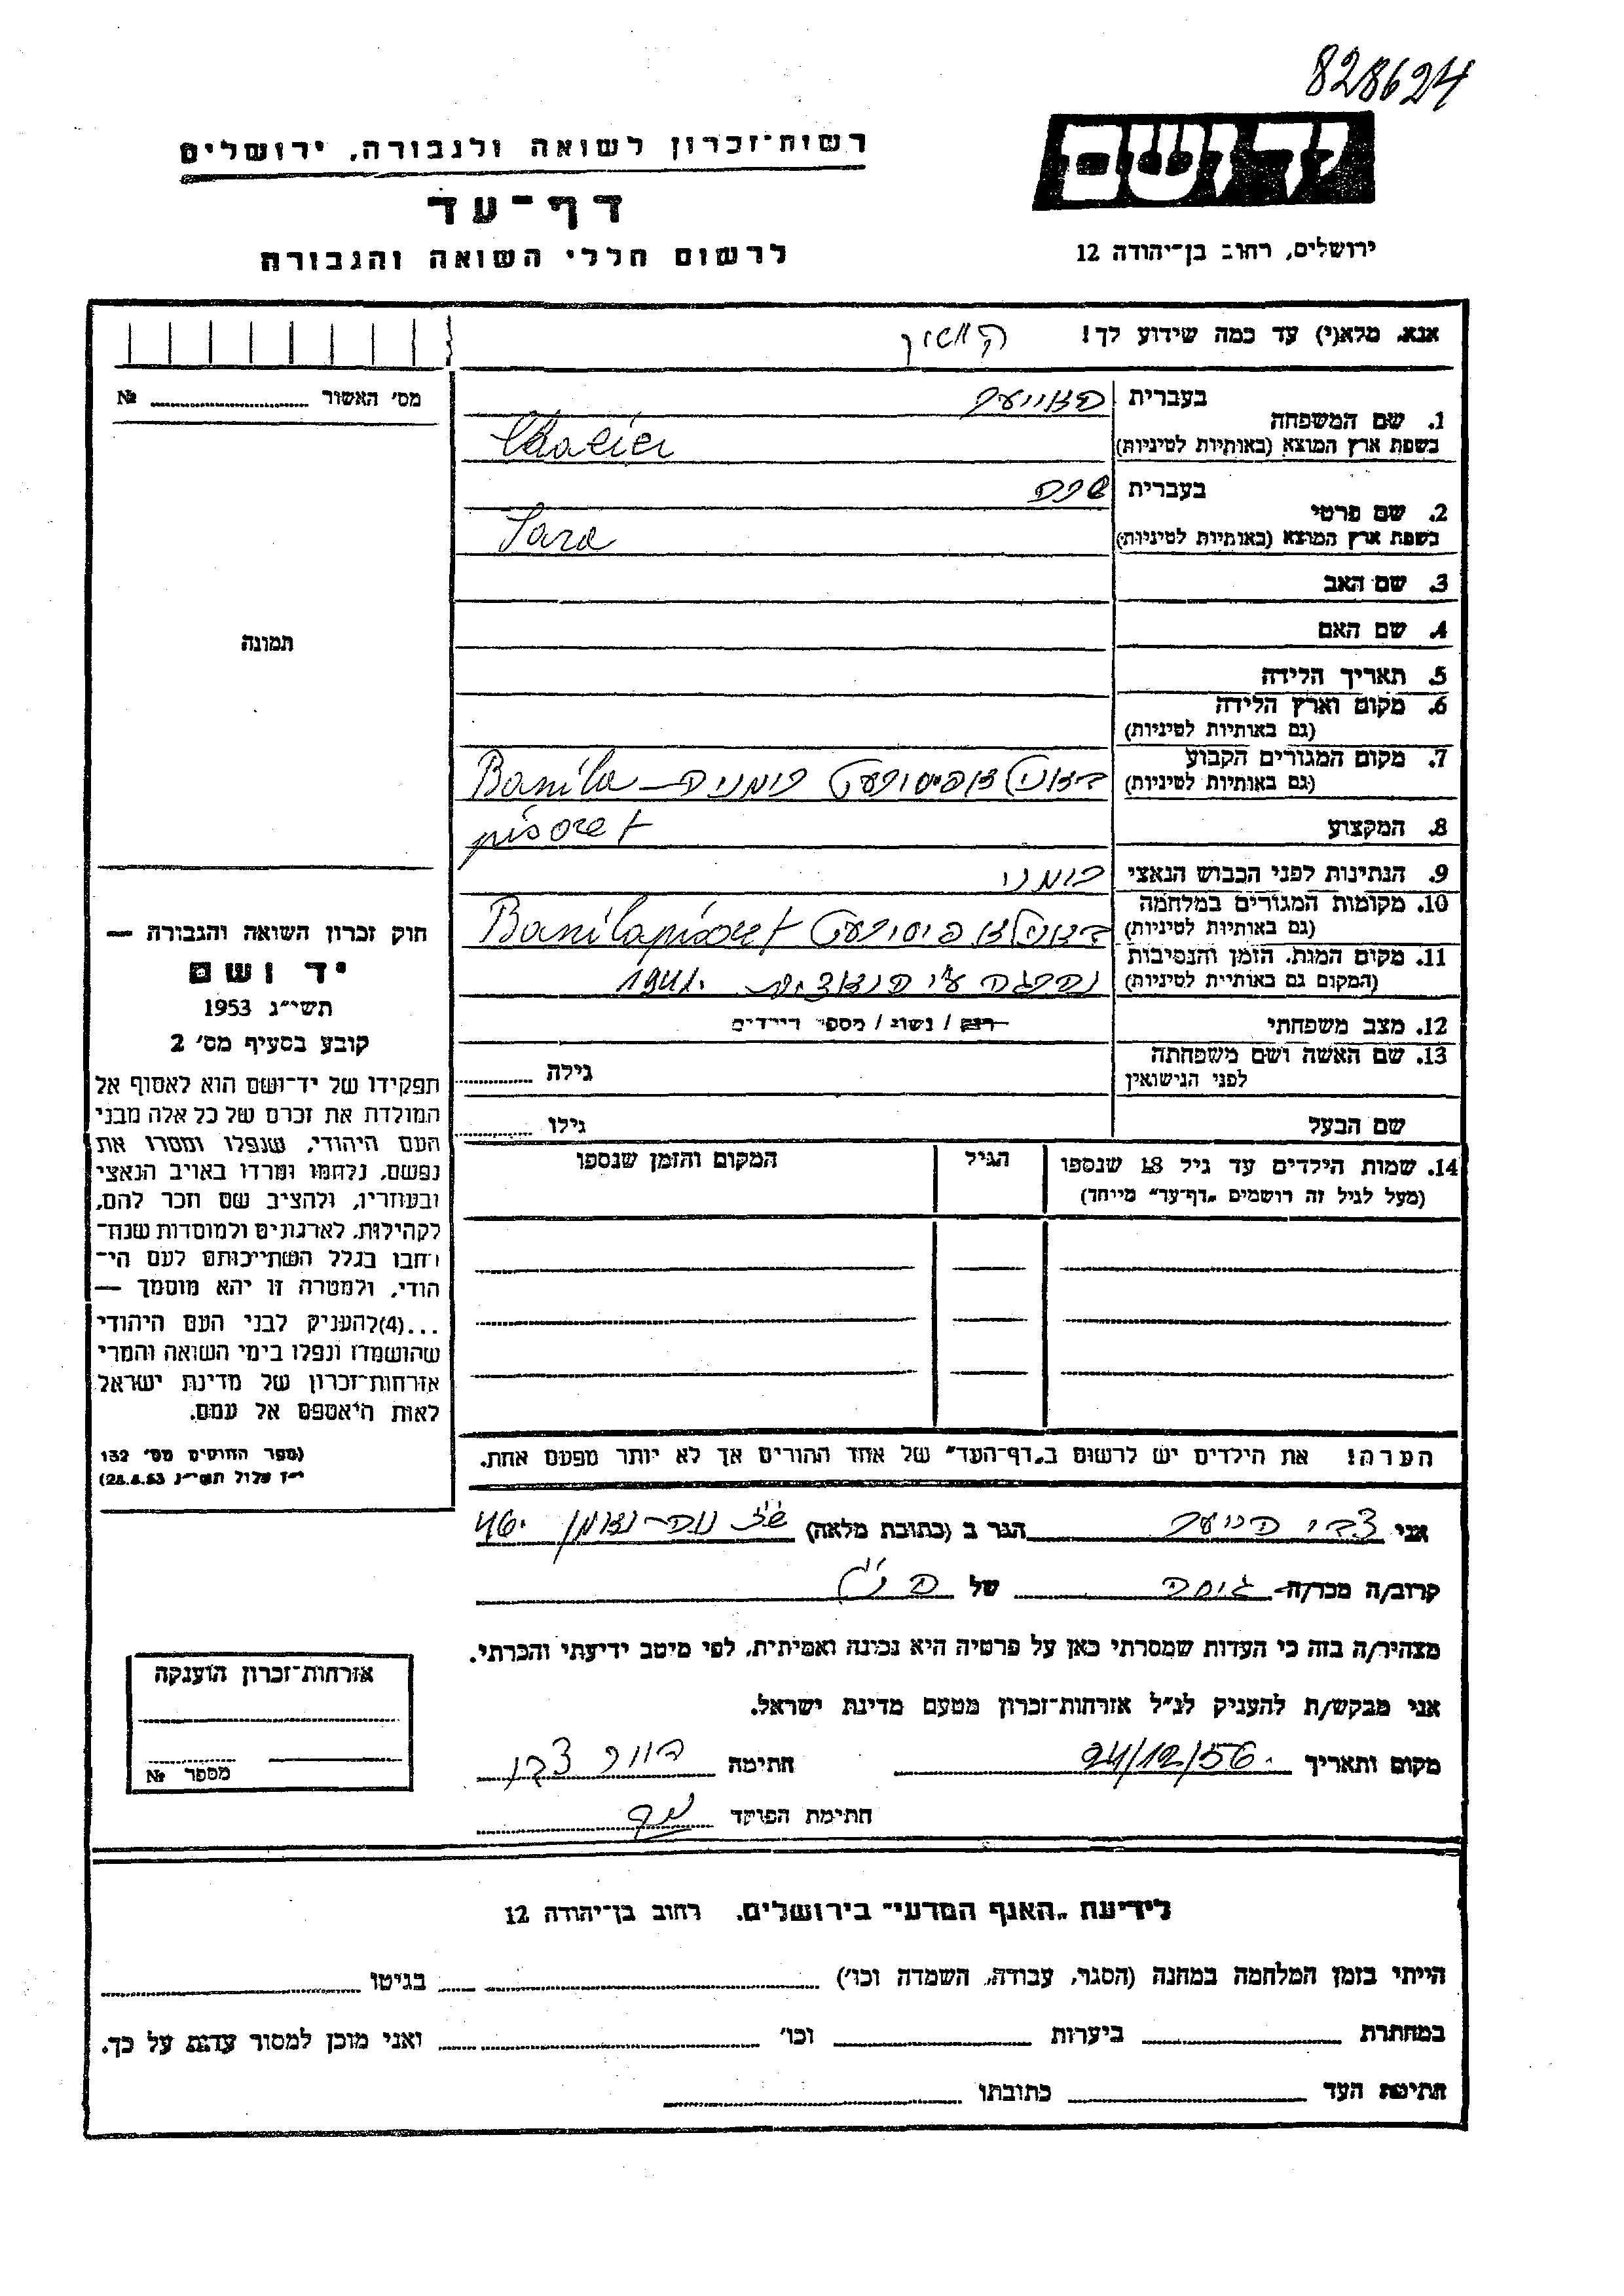 828624
יד ושם
רשות־זכרון לשואה ולגבורה, ירושלים
דף־עד
ירושלים, רחוב בן־יהודה 12
לרשום חללי השואה והגבורה
אנא, מלא(י) עד כמה שידוע לך!
מס' האשור № 
1. שם המשפחה בעברית
בשפת ארץ המוצא (באותיות לטיניות)
2. שם פרטי בעברית שרה
בשפת ארץ המוצא (באותיות לטיניות) Sara
3. שם האב
4. שם האם
תמונה
5. תאריך הלידה
6. מקום וארץ הלידה
(גם באותיות לטיניות)
7. מקום המגורים הקבוע רומניה – Banila
(גם באותיות לטיניות)
8. המקצוע pisoret
9. הנתינות לפני הכבוש הנאצי רומני
10. מקומות המגורים במלחמה Banilapisoret
(גם באותיות לטיניות)
11. מקום המות, הזמן והנסיבות נהרגה ע"י הנאצים 1941.
(המקום גם באותיות לטיניות)
12. מצב משפחתי רוק / נשוי / מספר הילדים
13. שם האשה ושם משפחתה גילה
לפני הנישואין
שם הבעל גילו
14. שמות הילדים עד גיל 18 שנספו הגיל המקום והזמן שנספו
(מעל לגיל זה רושמים "דף־עד" מיוחד)
הערה! את הילדים יש לרשום ב"דף־העד" של אחד ההורים אך לא יותר מפעם אחת.
חוק זכרון השואה והגבורה —
יד ושם
תשי"ג 1953
קובע בסעיף מס' 2
תפקידו של יד־ושם הוא לאסוף אל
המולדת את זכרם של כל אלה מבני
העם היהודי, שנפלו ומסרו את
נפשם, נלחמו ומרדו באויב הנאצי
ובעוזריו, ולהציב שם וזכר להם,
לקהילות, לארגונים ולמוסדות שנח־
רבו בגלל השתייכותם לעם הי־
הודי, ולמטרה זו יהא מוסמך —
...(4) להעניק לבני העם היהודי
שהושמדו ונפלו בימי השואה והמרי
אזרחות־זכרון של מדינת ישראל
לאות היאספם אל עמם.
(ספר החוקים מס' 132
י"ז אלול תשי"ג 28.8.53)
אני צבי הגר ב (כתובת מלאה)
קרוב/ה מכר/ה של
מצהיר/ה בזה כי העדות שמסרתי כאן על פרטיה היא נכונה ואמיתית, לפי מיטב ידיעתי והכרתי.
אני מבקש/ת להעניק לנ"ל אזרחות־זכרון מטעם מדינת ישראל.
מקום ותאריך 24/12/56. חתימה
חתימת הפוקד
אזרחות־זכרון הוענקה
מספר №
לידיעת "האגף המדעי" בירושלים, רחוב בן־יהודה 12
הייתי בזמן המלחמה במחנה (הסגר, עבודה, השמדה וכו') בגיטו
במחתרת ביערות וכו' ואני מוכן למסור עדות על כך.
חתימת העד כתובתו